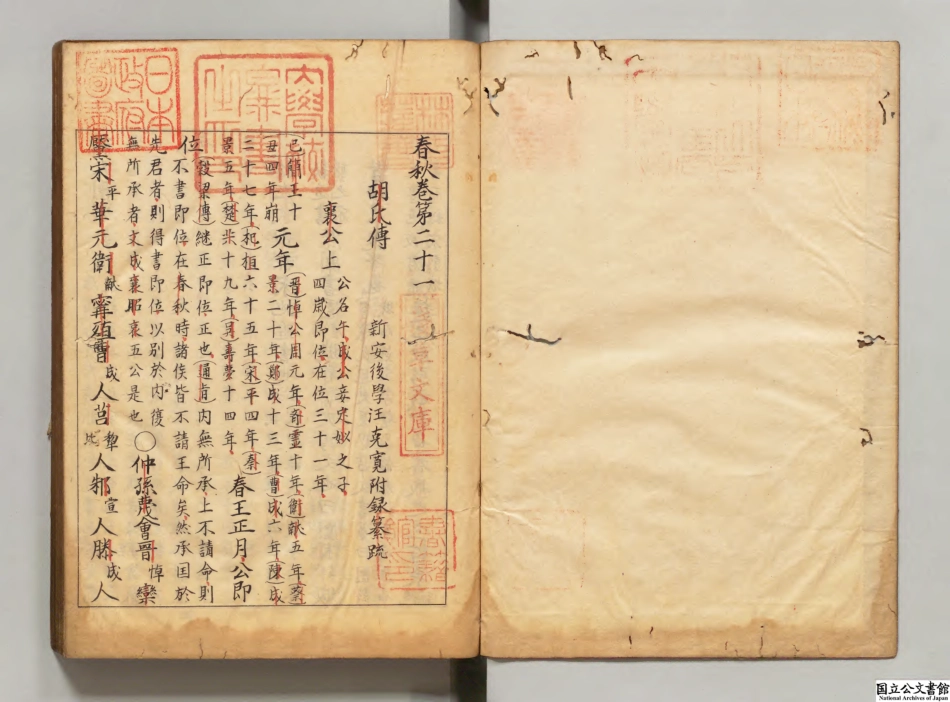 春秋卷第二十一
胡氏傳　新安後學汪克寛附録纂疏
襄公上　公名午成公妾定姒之子
四歳即位在位三十一年
己簡王十
丑四年崩
元年
晋悼公周元年斉霊十年衛献五年蔡
景二十年鄭成十三年曹成六年陳成
三十七年杞桓六十五年宋平四年秦
景五年楚共十九年呉壽夢十四年
春王正月公即
位
穀梁傳継正即位正也通旨内無所承上不請命則
不書即位在春秋時諸侯皆不請王命矣然承国於
先君者則得書即位以別於内復
無所承者文成襄昭哀五公是也
〇仲孫蔑會晋悼欒
黶宋平華元衛献甯殖曹成人莒犁比人邾宣人滕成人
日本政府圖書
淺草文庫
国立公文書館
National Archives of Japan